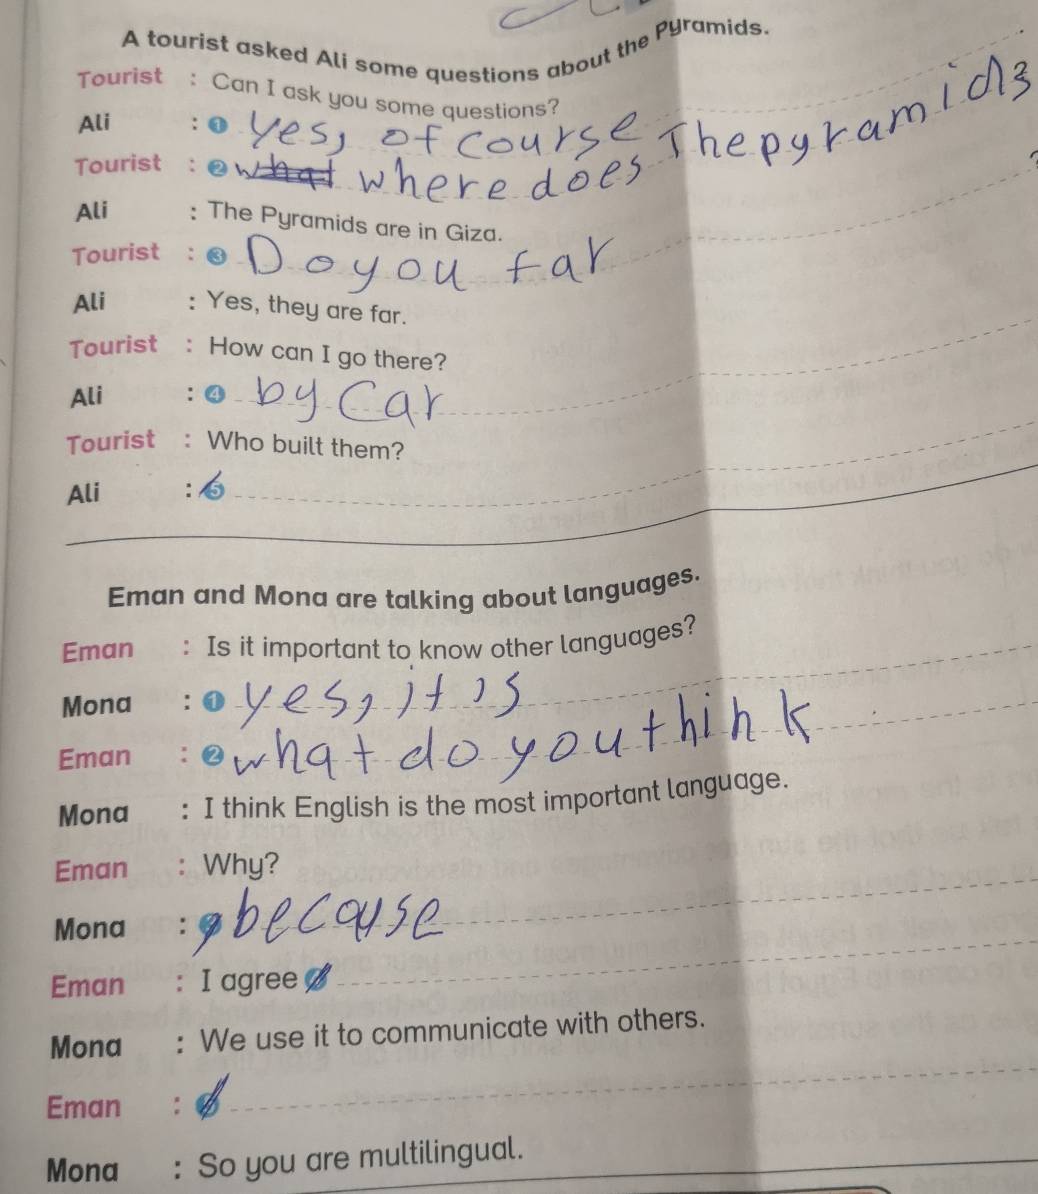 A tourist asked Ali some questions about the Pyramids.
Tourist : Can I ask you some questions?
Ali : 1 Yes, of course
Tourist : 2 what where does The pyramids
Ali : The Pyramids are in Giza.
Tourist : 3 Do you far
Ali : Yes, they are far.
Tourist : How can I go there?
Ali : 4 by Car
Tourist : Who built them?
Ali : 5
Eman and Mona are talking about languages.
Eman : Is it important to know other languages?
Mona : 1 yes, it is
Eman : 2 what do you think
Mona : I think English is the most important language.
Eman : Why?
Mona : because
Eman : I agree
Mona : We use it to communicate with others.
Eman :
Mona : So you are multilingual.